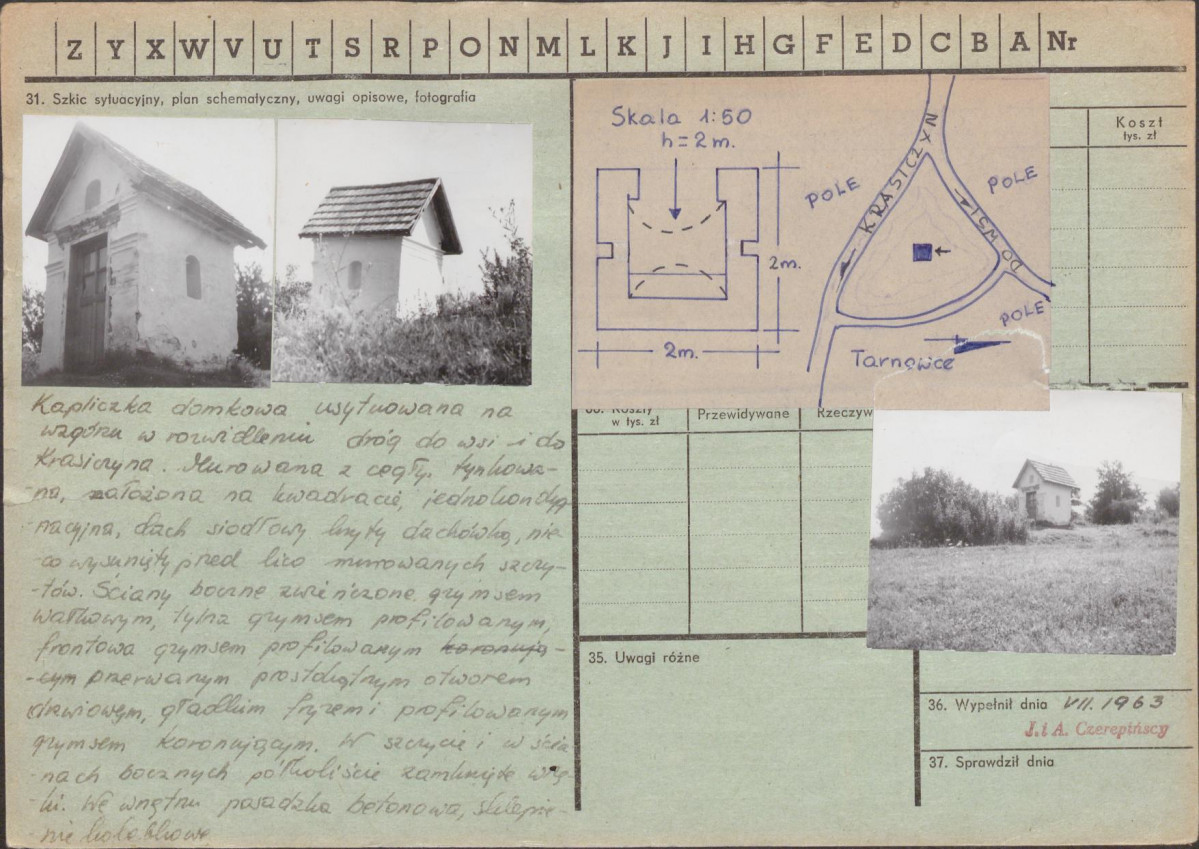 Z Y X W V U T S R P O N M L K J I H G F E D C B A Nr
31. Szkic sytuacyjny, plan schematyczny, uwagi opisowe, fotografia
Kapliczka domkowa usytuowana na
wzgórzu w rozwidleniu dróg do wsi i do
Krasiczyna. Murowana z cegły, tynkowa-
na, założona na kwadracie, jednokondyg
-nacyjna, dach siodłowy kryty dachówką, nie-
-co wysunięty przed lico murowanych szczy-
-tów. Ściany boczne zwieńczone gzymsem
wałkowym, tylna gzymsem profilowanym,
frontowa gzymsem profilowanym koronują-
-cym przerwanym prostokątnym otworem
drzwiowym, gładkim fryzem i profilowanym
gzymsem koronującym. W szczycie i w ścia
-nach bocznych półkoliście zamknięte wnę-
-ki. We wnętrzu posadzka betonowa, sklepie-
-nie kolebkowe
Skala 1:50
h=2m.
2m.
2m.
POLE
KRASICZYN
POLE
DO WSI
POLE
Tarnawce
Koszt
tys. zł
Koszty
w tys. zł
Przewidywane
Rzeczyw
35. Uwagi różne
36. Wypełnił dnia VII. 1963
J. i A. Czerepińscy
37. Sprawdził dnia